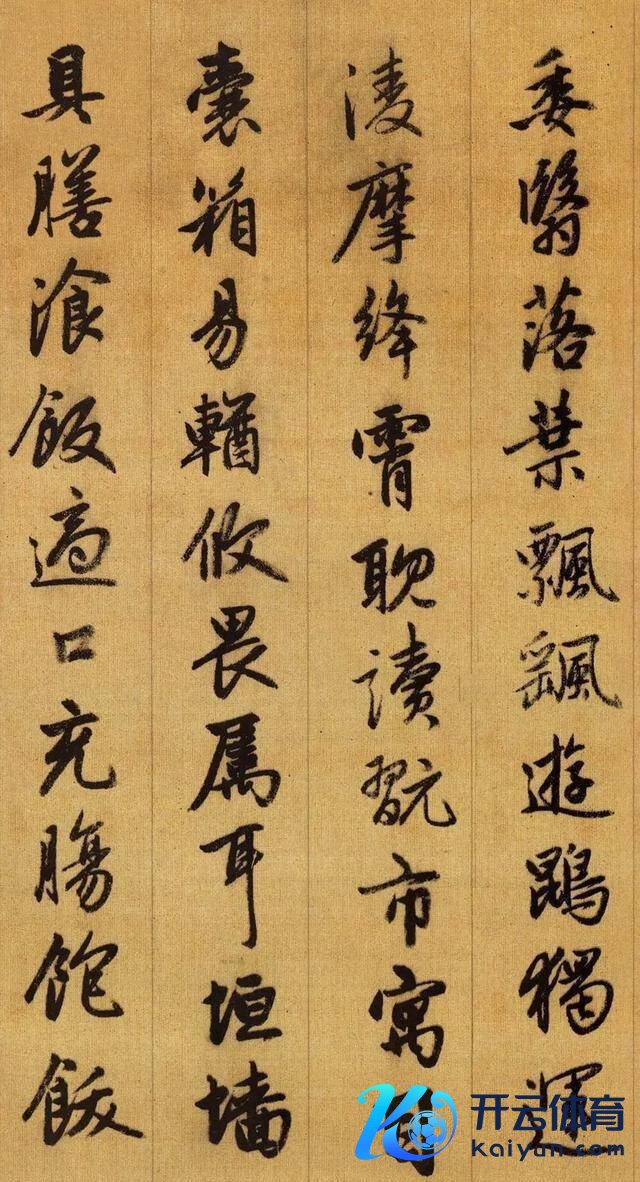 委翳落葉飄颻遊鵾獨運
淩摩絳霄耽讀翫市寓目
囊箱易輶攸畏属耳垣墙
具膳湌飯適口充膓飽飫
开云体育
Kaiyun.com